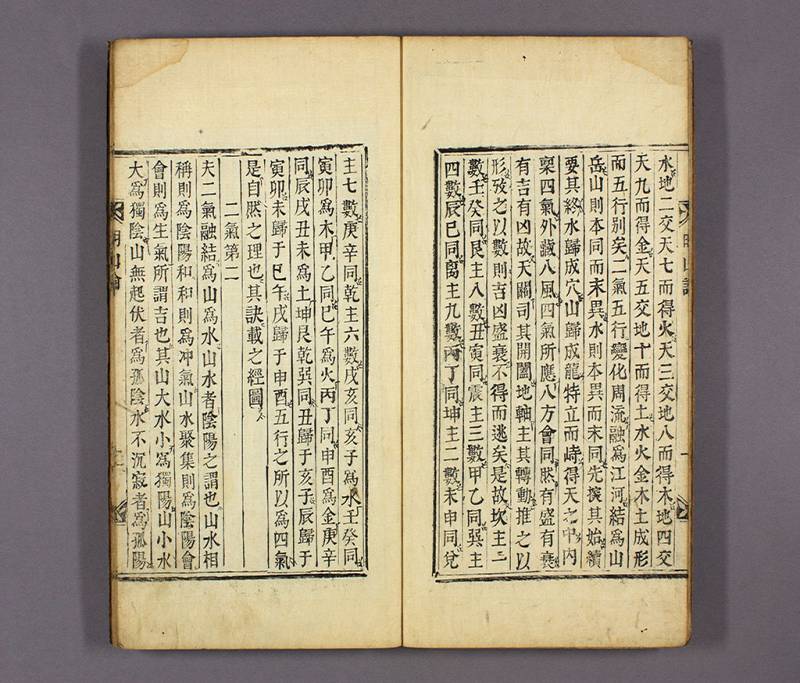 水地二交天七而得火天三交地八而得木地四交
天九而得金天五交地十而得土水火金木土成形
而五行別矣二氣五行變化周流融爲江河結爲山
岳山則本同而末異水則本異而末同先推其始續
要其終水歸成穴山歸成龍特立而峙得天之中內
稟四氣外議八風四氣所應八方會同然有盛有衰
有吉有凶故天關司其開闔地軸主其轉動推之以
形攷之以數則吉凶盛衰不得而逃矣是故坎主一
數壬癸同艮主八數丑寅同震主三數甲乙同巽主
四數辰巳同离主九數丙丁同坤主二數未申同兌
主七數庚辛同乾主六數戌亥同亥子爲水壬癸同
寅卯爲木甲乙同巳午爲火丙丁同申酉爲金庚辛
同辰戌丑未爲土坤艮乾巽同丑歸于亥子辰歸于
寅卯未歸于巳午戌歸于申酉五行之所以爲四氣
是自然之理也其訣載之經圖
二氣第二
夫二氣融結爲山爲水山水者陰陽之謂也山水相
稱則爲陰陽和和則爲冲氣山水聚集則爲陰陽會
會則爲生氣所謂吉也其山大水小爲獨陽山小水
大爲獨陰山無起伏者爲孤陰水不沉寂者爲孤陽
明山論